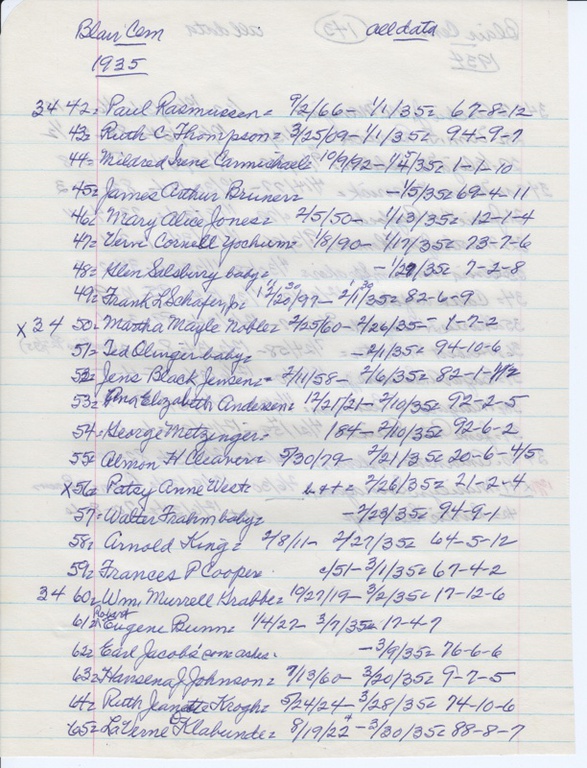 Blair Cem all data
1935
34 42= Paul Rasmussen= 9/2/66- 1/1/35= 67-8-12
43= Ruth C Thompson= 3/25/09- 1/1/35= 94-9-7
44= Mildred Irene Carmichael= 10/9/92- 1/4/35= 1-1-10
45= James Arthur Bruner= -1/5/35= 69-4-11
46= Mary Alice Jones= 2/5/50- 1/13/35= 12-1-4
47= Verne Cornell Yochum= 1/8/90- 1/17/35= 73-7-6
48= Glen Salsbury baby= -1/29/35= 7-2-8
49= Frank L Schafer, Jr= 12/20/97- 2/1/35= 82-6-9
x 34 50= Martha Mayle Noble= 2/25/60- 2/26/35- 1-7-2
51= Ted Olinger baby= -2/1/35= 94-10-6
52= Jens Black Jensen= 2/11/58- 2/6/35= 82-1-1/2
53= Elizabeth Andersen= 12/27/21- 2/10/35= 92-2-5
54= George Metzinger= 184- 2/10/35= 92-6-2
55= Almon H Cleaver= 5/30/79 2/21/35= 20-6-4/5
x 56= Patsy Anne West= b+t= 2/26/35= 21-2-4
57= Walter Frahm baby= -2/23/35= 94-9-1
58= Arnold King= 2/8/11- 2/27/35= 64-5-12
59= Frances P Cooper= c/51- 3/1/35= 67-4-2
34 60= Wm Murrell Grabbe= 10/27/19- 3/2/35= 17-12-6
61= Robert Eugene Bunn= 1/4/27- 3/7/35= 17-4-7
62= Earl Jacobs some ashes= -3/9/35= 76-6-6
63= Hansena J Johnson= 7/13/60- 3/20/35= 9-7-5
64= Ruth Jeanette Krogh= 5/24/24- 3/28/35= 74-10-6
65= LaVerne Klabunde= 8/19/22- 3/30/35= 88-8-7